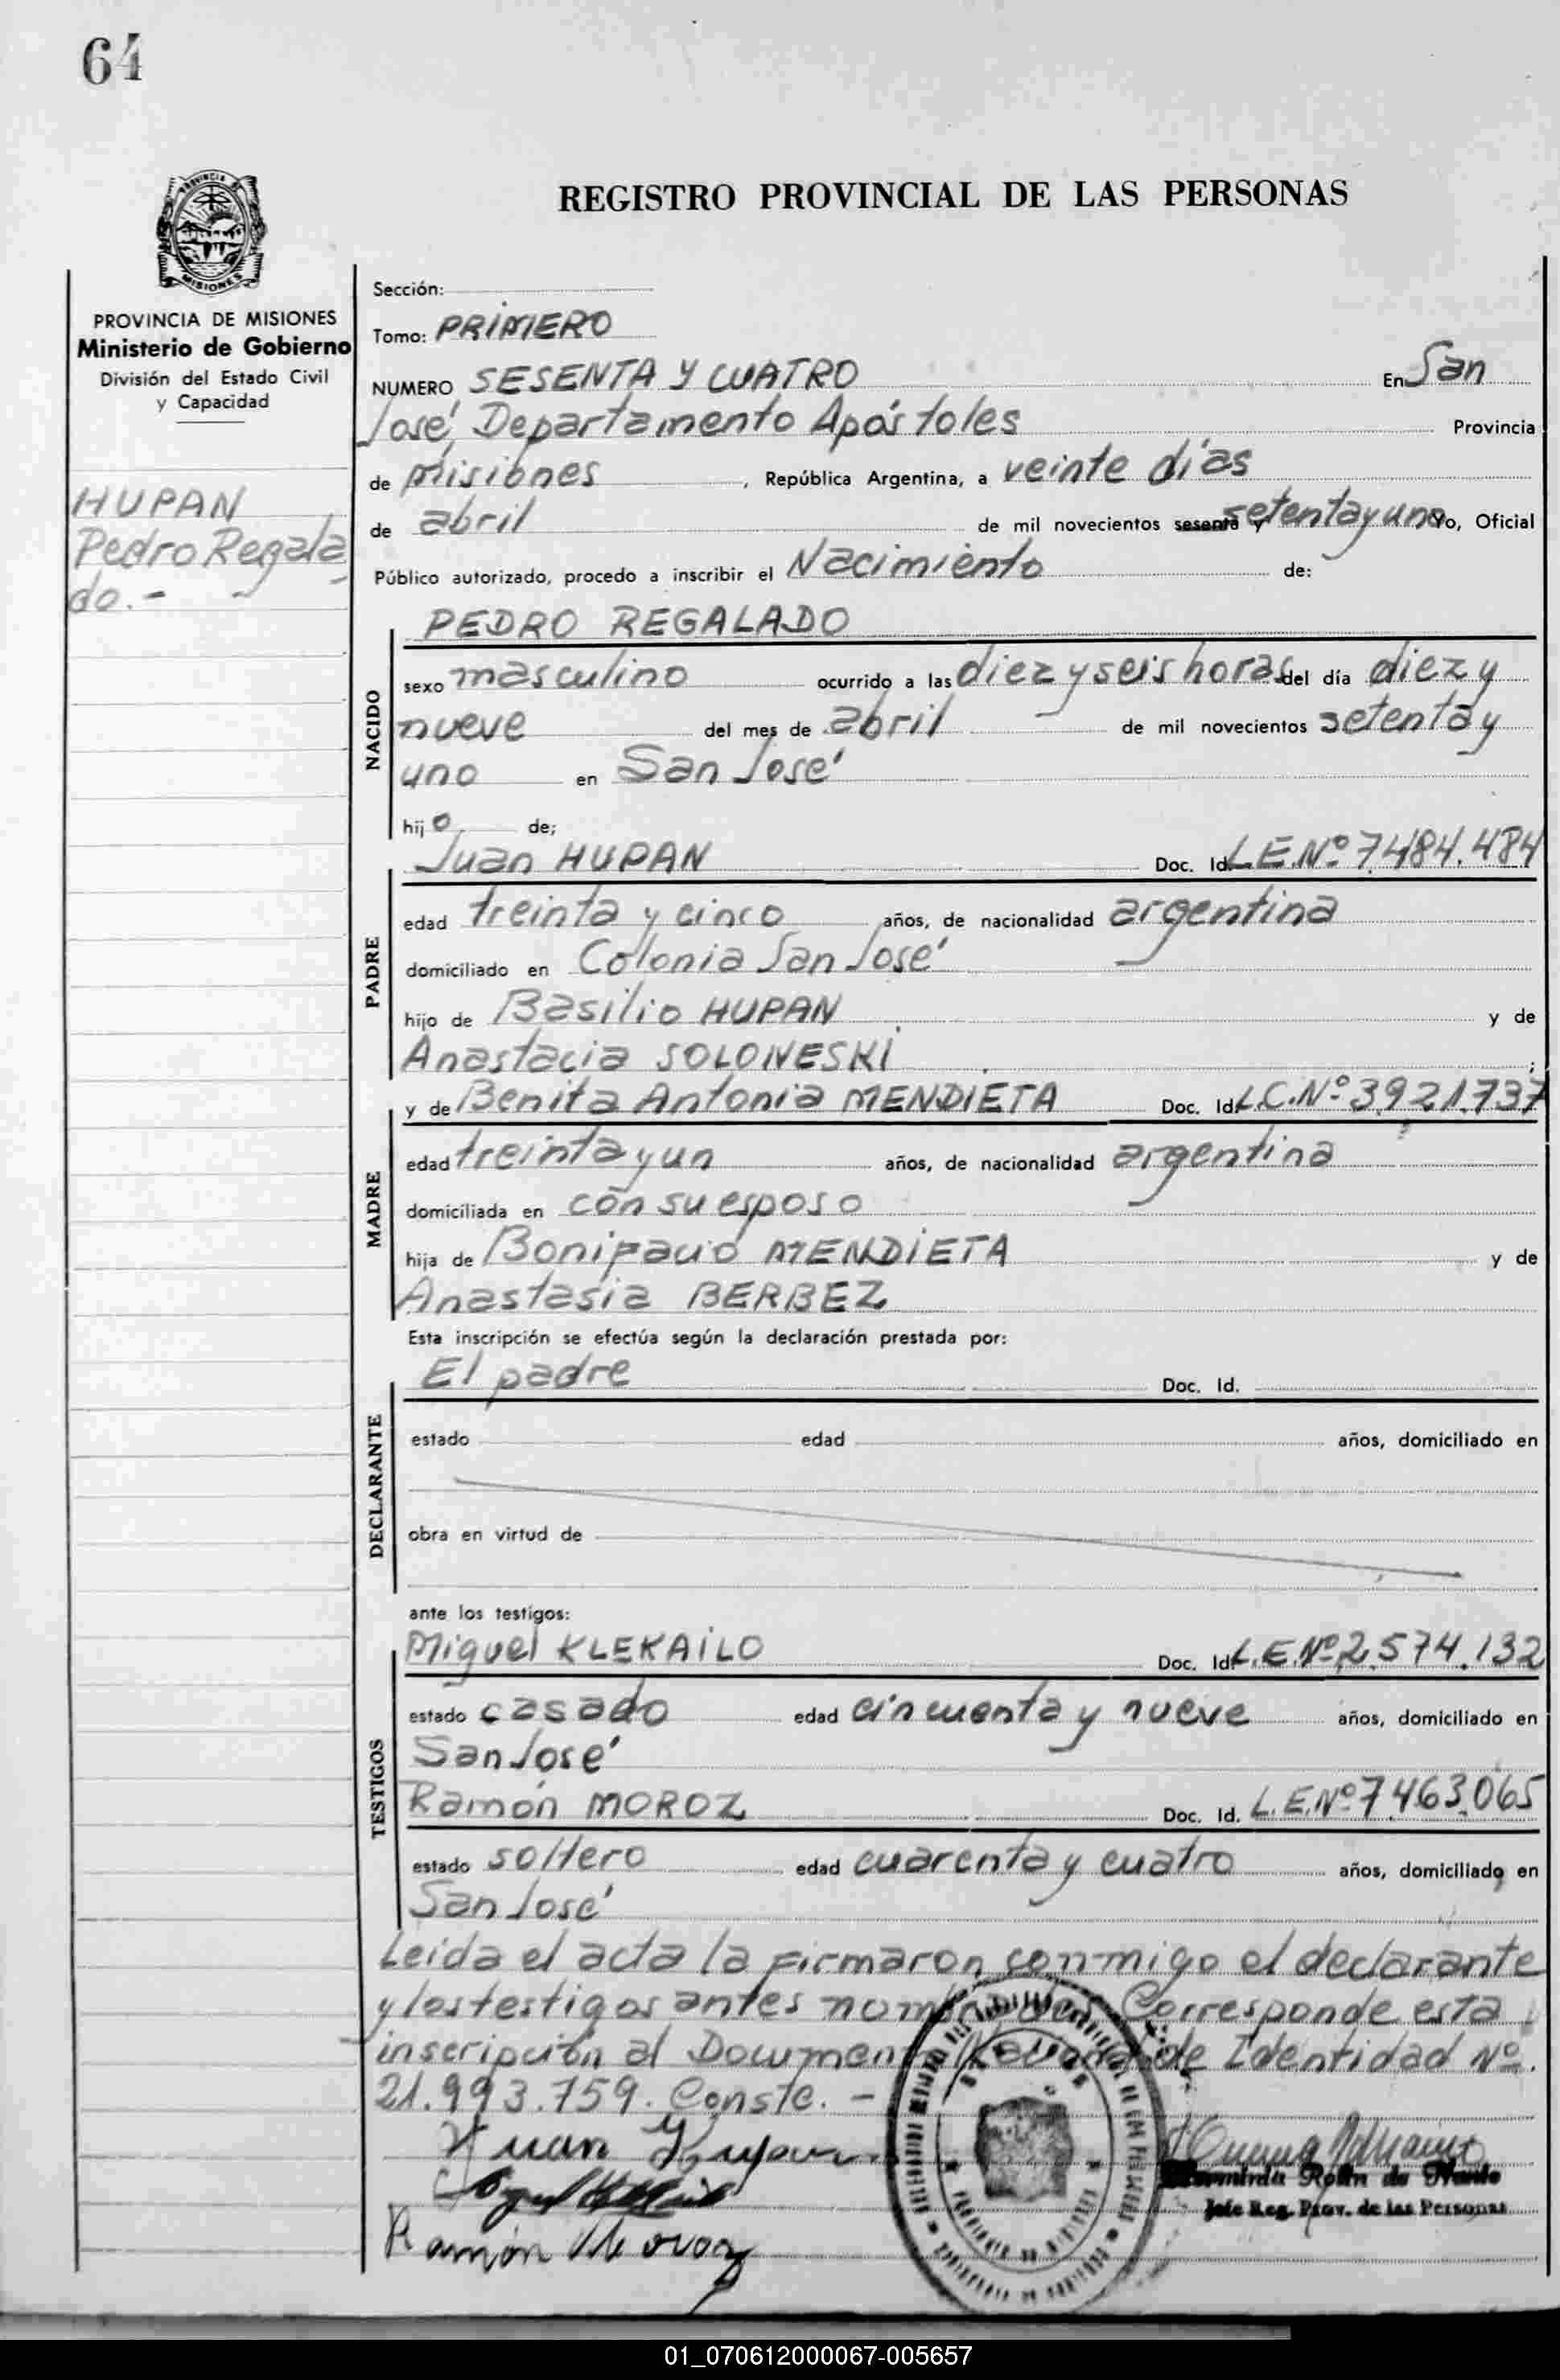 64
REGISTRO PROVINCIAL DE LAS PERSONAS
PROVINCIA DE MISIONES
Ministerio de Gobierno
División del Estado Civil
y Capacidad
HUPAN
Pedro Regala
do.-
Sección:
Tomo: PRIMERO
NUMERO SESENTA Y CUATRO En San
José, Departamento Apóstoles Provincia
de Misiones, República Argentina, a veinte días
de abril de mil novecientos sesenta y setenta y uno Yo, Oficial
Público autorizado, procedo a inscribir el Nacimiento de:
PEDRO REGALADO
NACIDO
sexo masculino ocurrido a las diez y seis horas del día diez y
nueve del mes de abril de mil novecientos setenta y
uno en San José
hijo de;
Juan HUPAN Doc. Id. L.E.Nº 7.484.484
PADRE
edad treinta y cinco años, de nacionalidad argentina
domiciliado en Colonia San José
hijo de Basilio HUPAN y de
Anastacia SOLONESKI;
y de Benita Antonia MENDIETA Doc. Id. L.C.Nº 3.921.737
MADRE
edad treinta y un años, de nacionalidad argentina
domiciliada en con su esposo
hija de Bonifacio MENDIETA y de
Anastasia BERBEZ
Esta inscripción se efectúa según la declaración prestada por:
El padre Doc. Id.
DECLARANTE
estado edad años, domiciliado en
obra en virtud de
ante los testigos:
Miguel KLEKAILO Doc. Id. L.E.Nº 2.574.132
TESTIGOS
estado casado edad cincuenta y nueve años, domiciliado en
San José
Ramón MOROZ Doc. Id. L.E.Nº 7.463.065
estado soltero edad cuarenta y cuatro años, domiciliado en
San José
Leida el acta la firmaron conmigo el declarante
y los testigos antes nombrados Corresponde esta
inscripción al Documento Nacional de Identidad Nº
21.993.759. Conste. -
Juan Hupan
Ramón Moroz
Jefe Reg. Prov. de las Personas
01_070612000067-005657